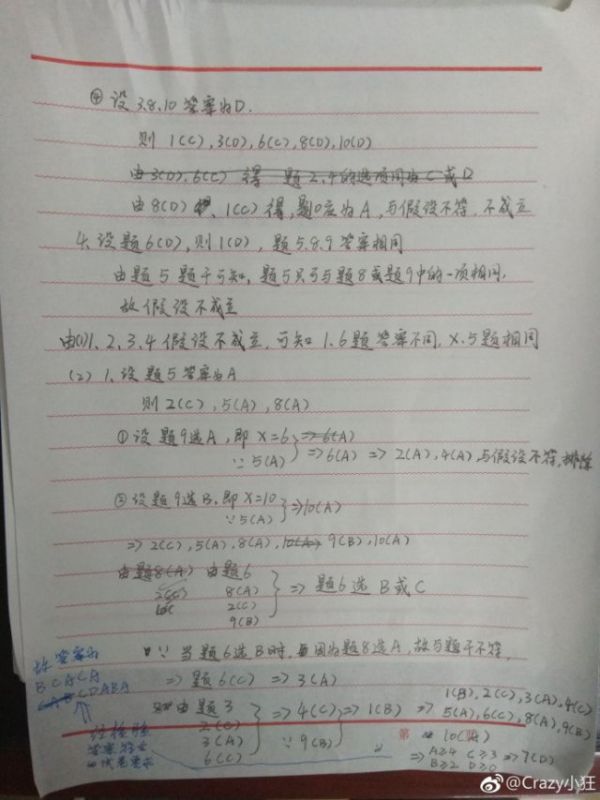 ④设3.8.10答案为D.
则 1(C),3(D),6(C),8(D),10(D)
由3(D),6(C) 得 题2.4的选项同为C或D
由8(D) 1(C)得,题10应为A,与假设不符,不成立
4.设题6(D),则1(D),题5.8.9答案相同
由题5题干可知,题5只可与题8或题9中的一项相同,
故假设不成立
由(1)1、2、3、4假设不成立,可知1.6题答案不同,X.5题相同
(2) 1.设题5答案为A
则2(C),5(A),8(A)
①设题9选A,即X=6 ⇒6(A)
∵5(A) ⇒6(A) ⇒2(A),4(A),与假设不符,排除
②设题9选B,即X=10
∵5(A) ⇒10(A)
⇒2(C),5(A),8(A),10(A) 9(B),10(A)
由题8(A) 由题6
2(C) 8(A)
2(C)
9(B)
⇒题6选B或C
∵当题6选B时,因为题8选A,故与题干不符,
⇒题6(C) ⇒3(A)
由题3
2(C)
3(A)
6(C)
⇒4(C)
∵9(B)
⇒1(B)
⇒1(B),2(C),3(A),4(C)
5(A),6(C),8(A),9(B)
10(A)
⇒A≥4 C≥3
B≥2 D≥0
⇒7(D)
故答案为
BCACA
CDABA
经检验
答案符合
要求
第 页
@Crazy小狂